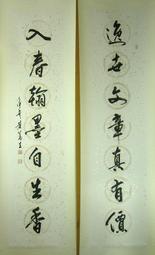 逸世文章真有價
入春翰墨自生香